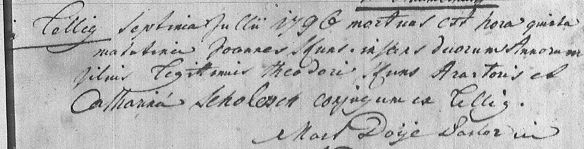 Tellig Septima Julii 1796 mortuus est hora quinta
matutina Joannes Muns infans duorum Annorum
filius Legitimus Theodori Muns Aratoris et
Catharina Scholesch conjugum ex Tellig.
Mart Doije Pastor in